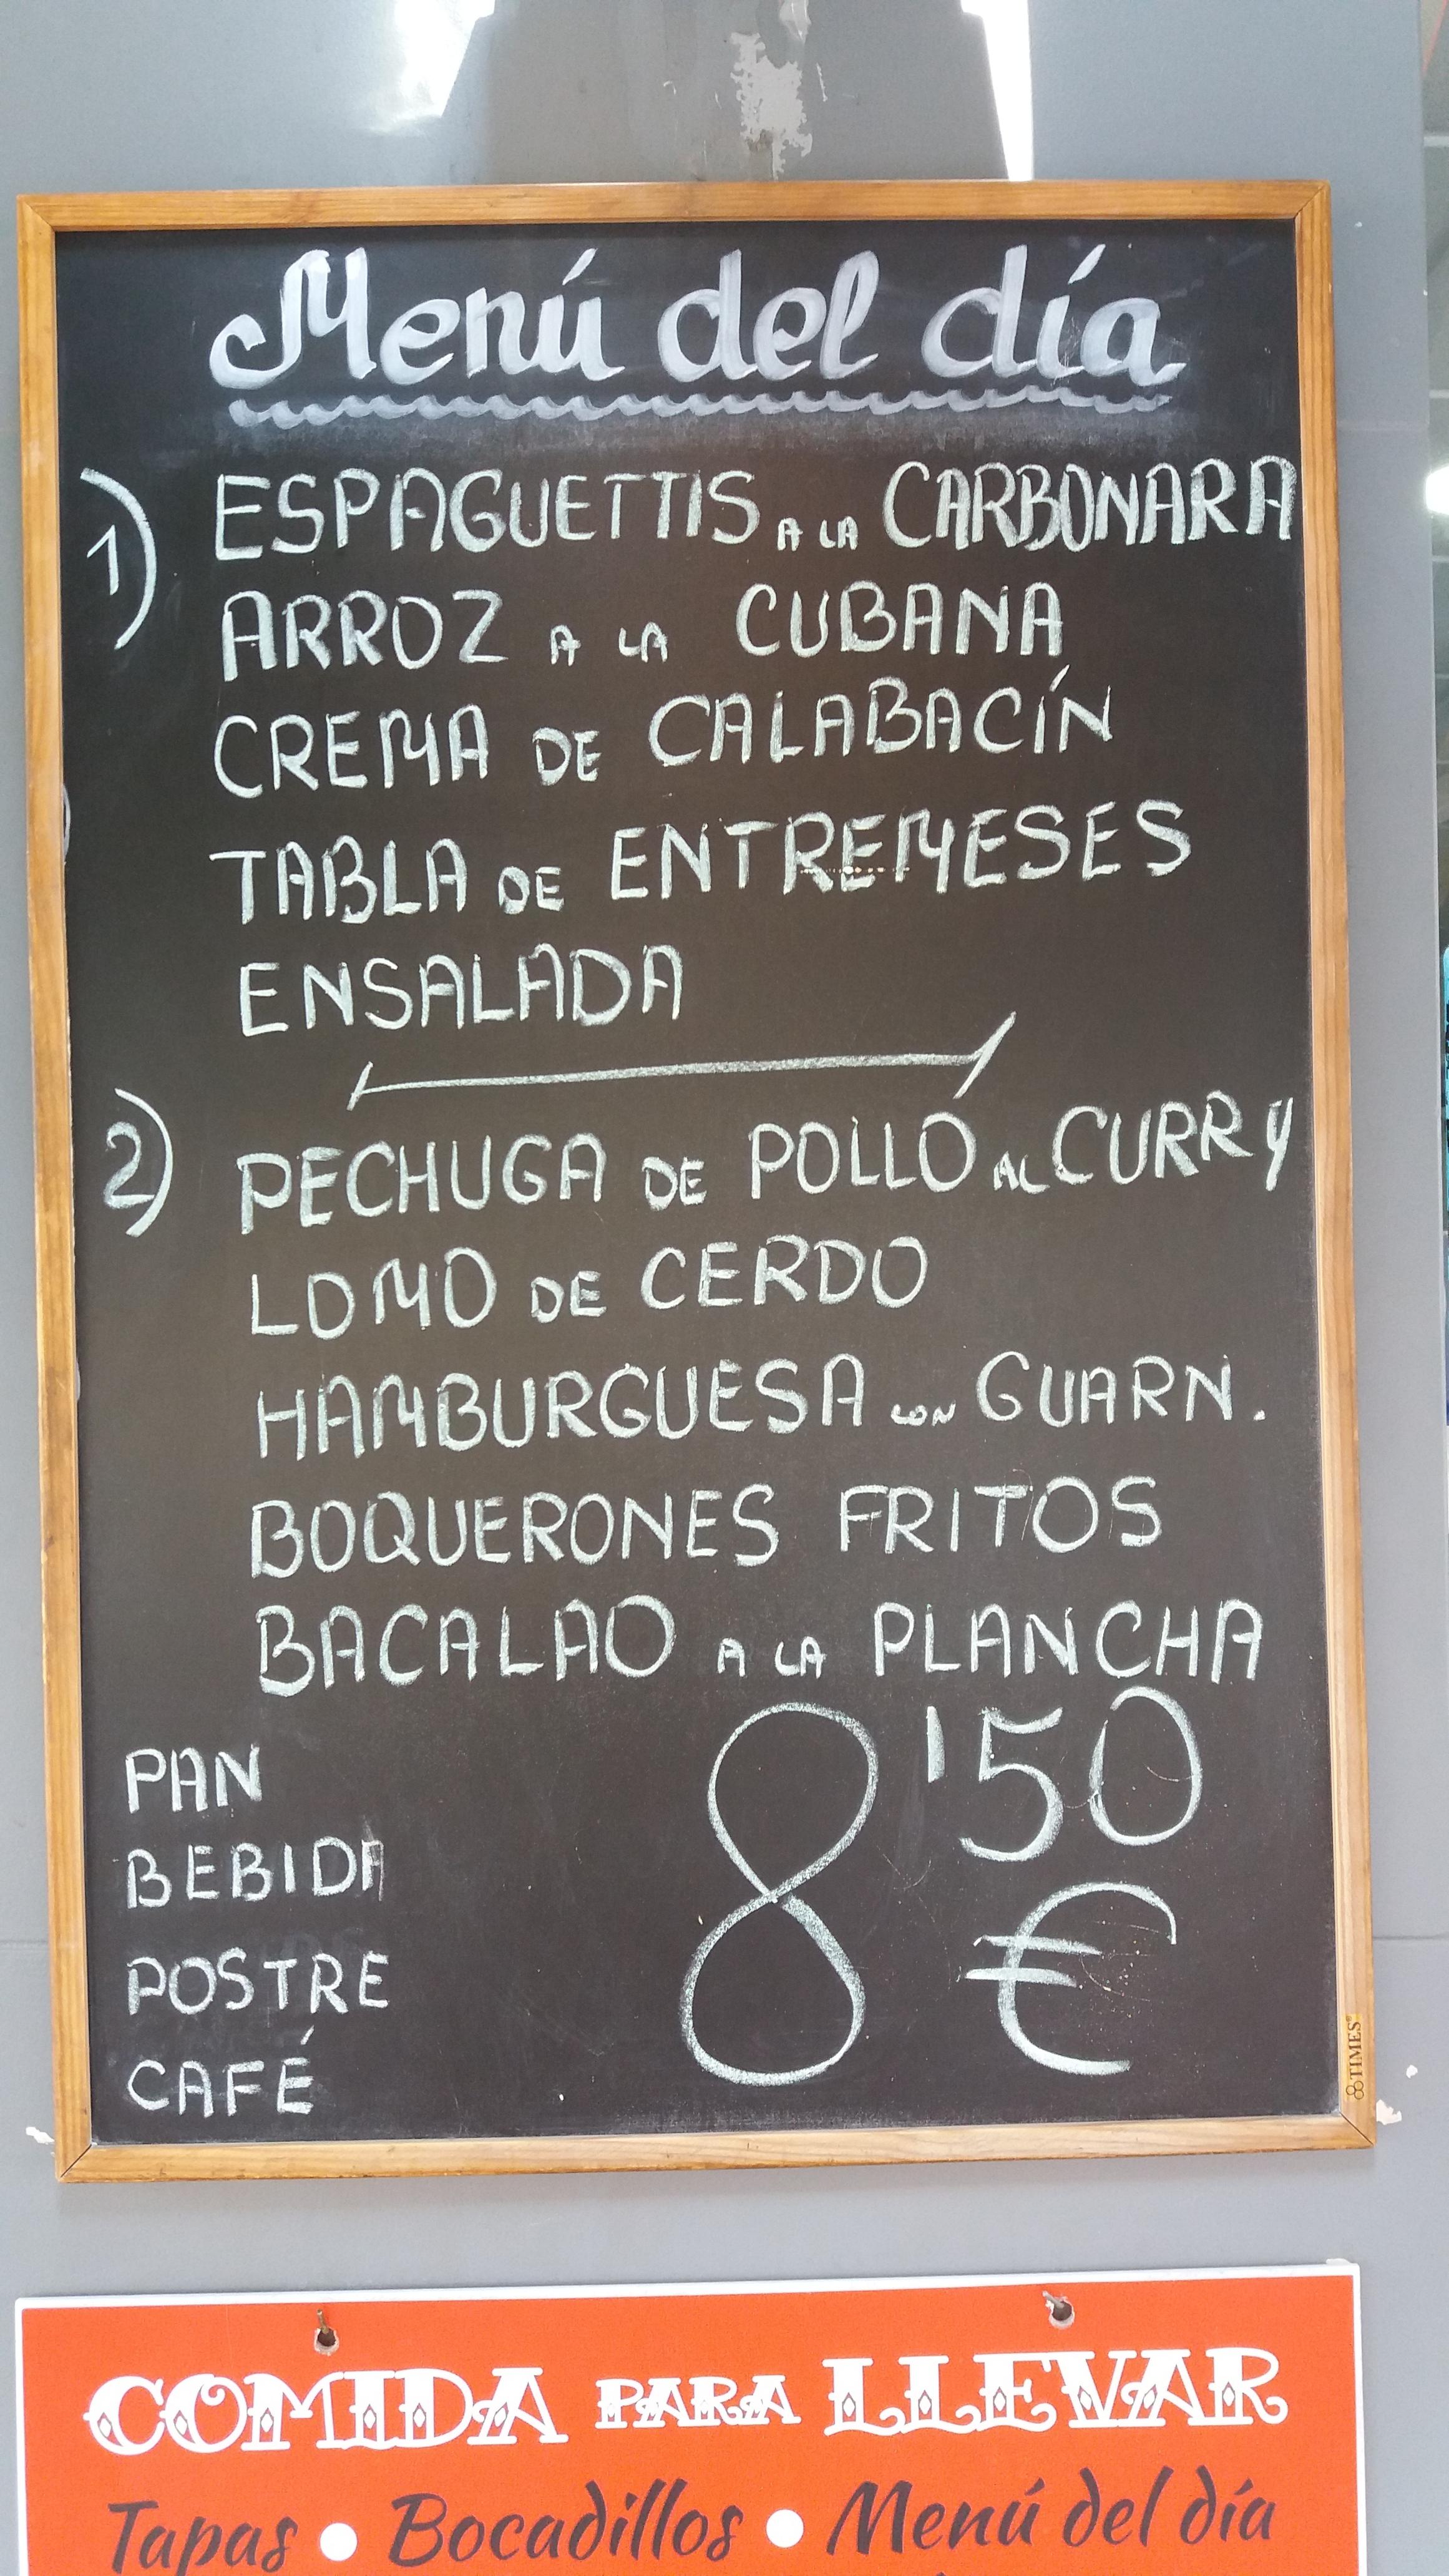 Menú del día
1) ESPAGUETTIS A LA CARBONARA
ARROZ A LA CUBANA
CREMA DE CALABACÍN
TABLA DE ENTREMESES
ENSALADA
2) PECHUGA DE POLLO AL CURRY
LOMO DE CERDO
HAMBURGUESA CON GUARN.
BOQUERONES FRITOS
BACALAO A LA PLANCHA
PAN
BEBIDA
POSTRE
CAFÉ
8'50
€
TIMES
COMIDA PARA LLEVAR
Tapas • Bocadillos • Menú del día